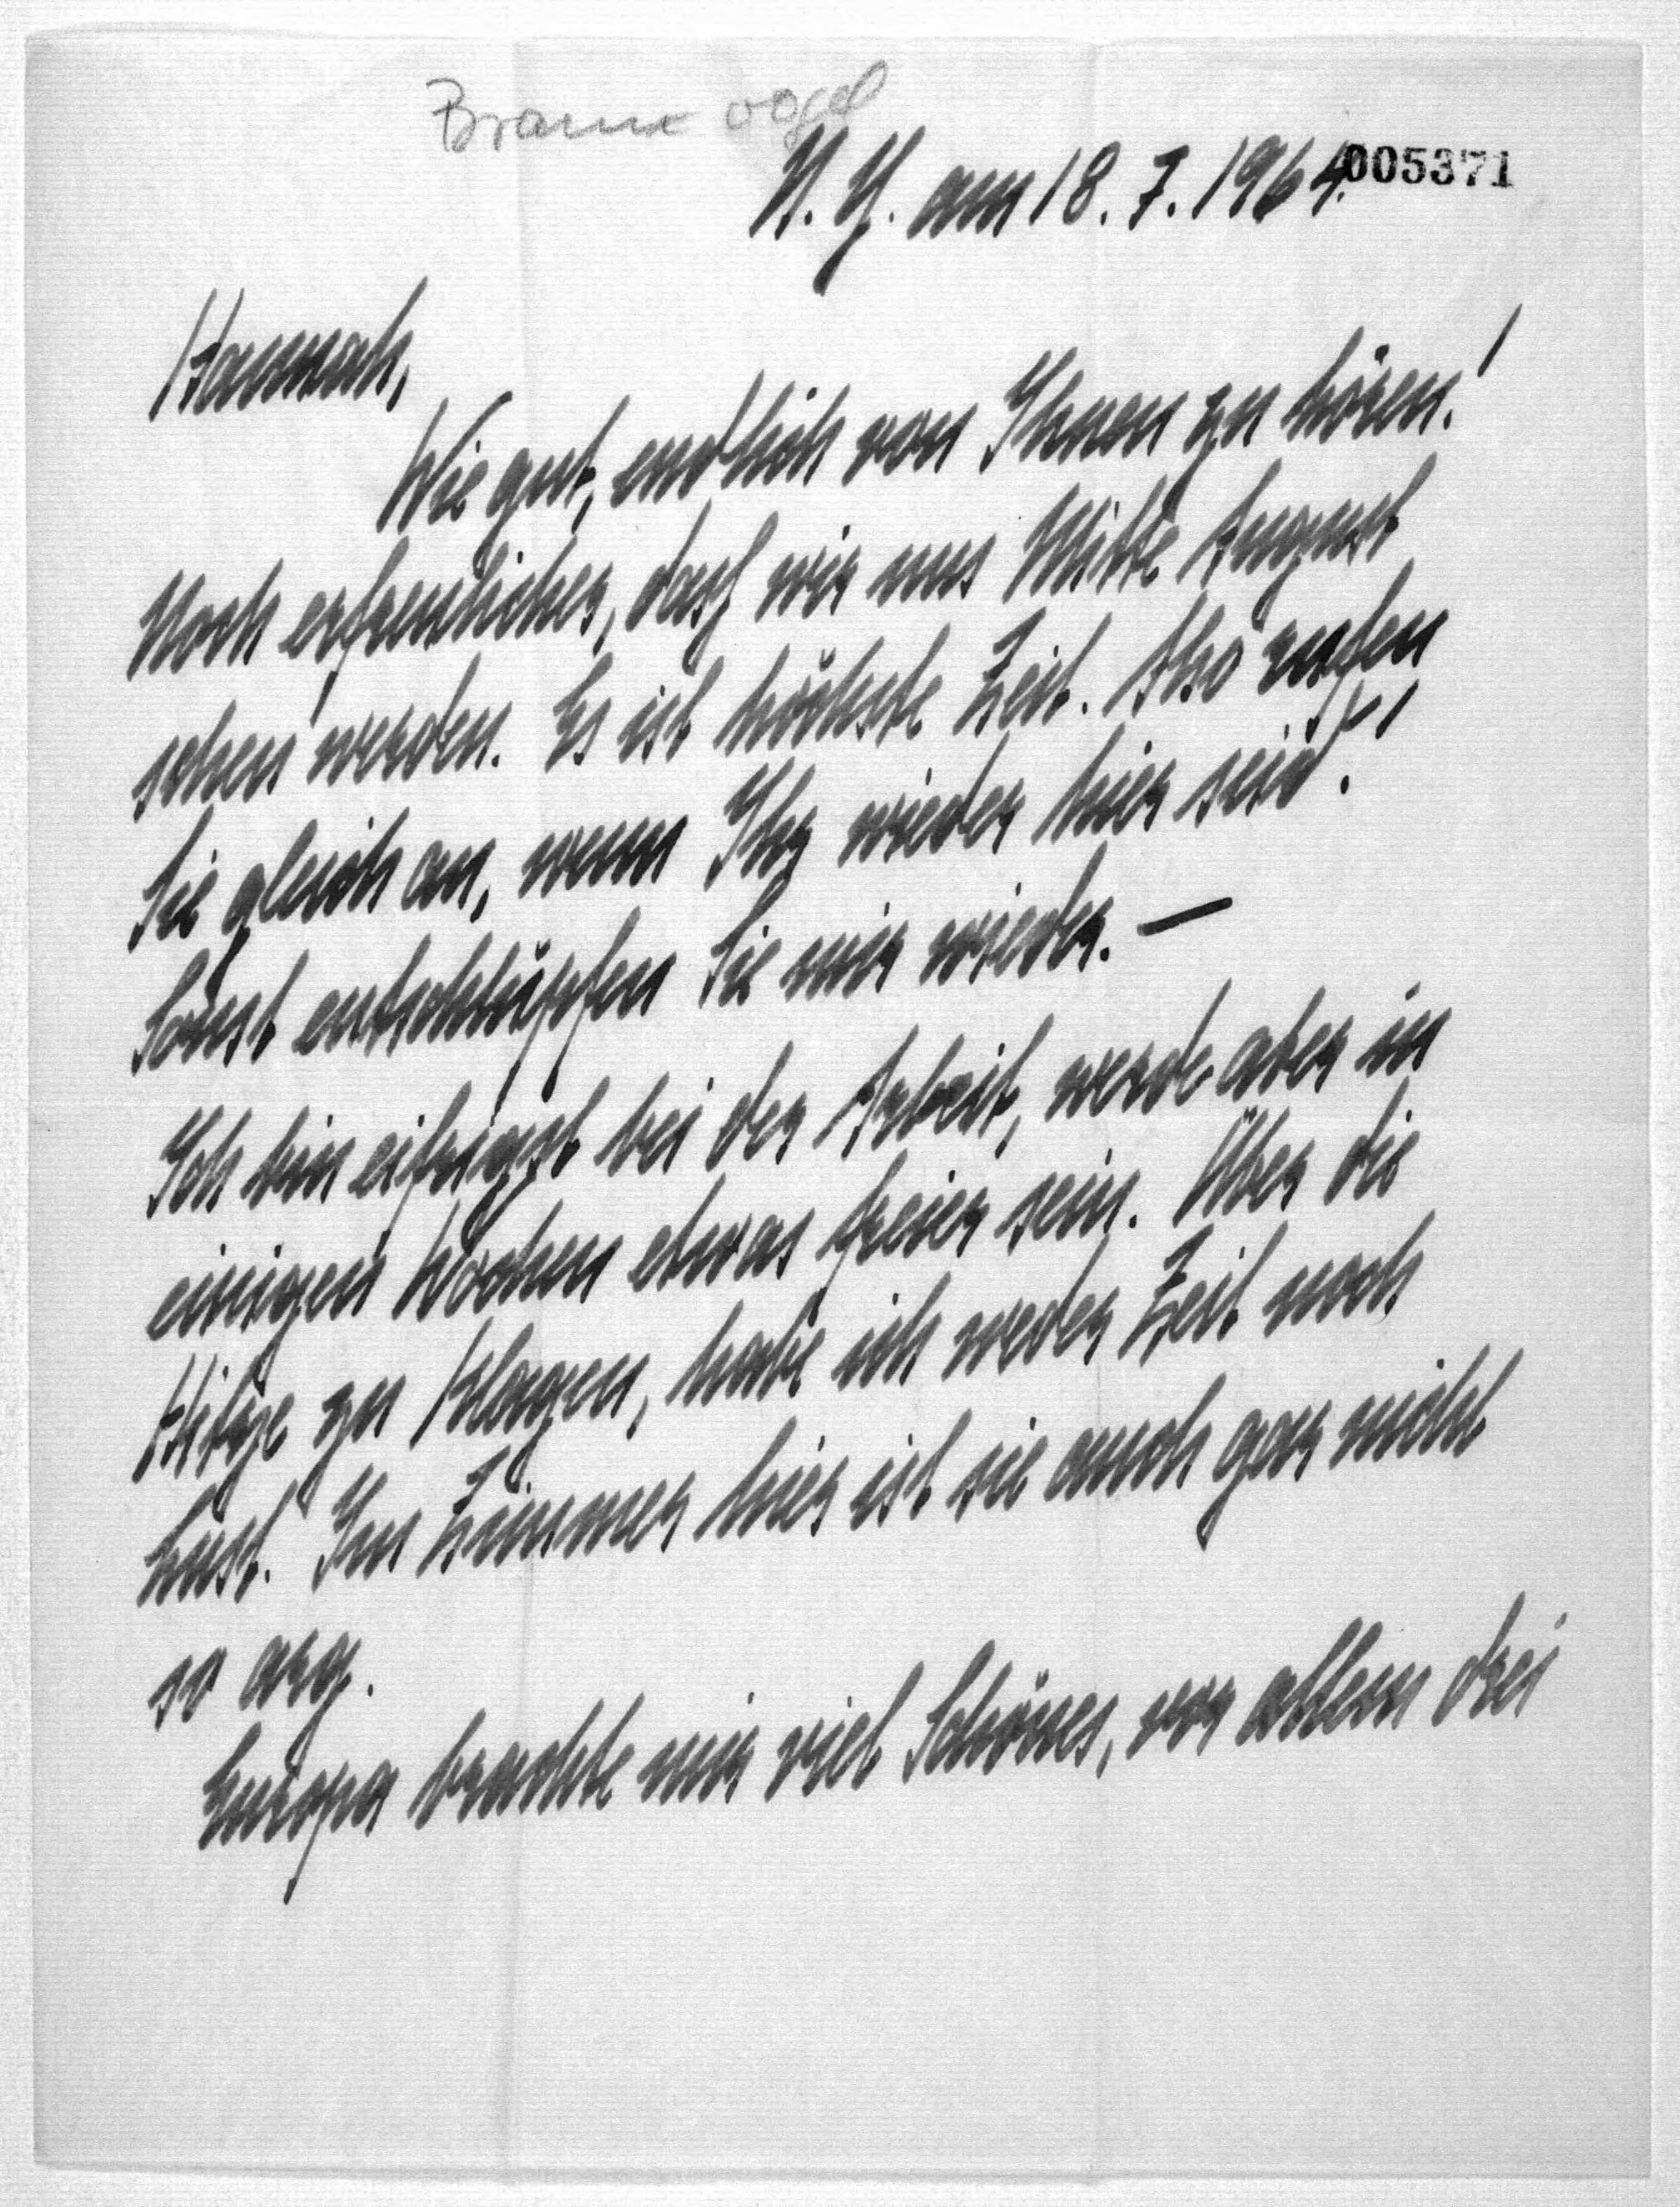 Braun Vogel
N. Y. am 18. 7. 1964.
005371
Hannah,
Wie gut, endlich von Ihnen zu hören!
Noch erfreulicher, dass wir uns Mitte August
sehen werden. Es ist höchste Zeit. Also rufen
Sie gleich an, wenn Ihr wieder hier seid!
Sonst entschlüpfen Sie mir wieder. —
Ich bin eifrigst bei der Arbeit, werde aber in
einigen Wochen etwas freier sein. Über die
Hitze zu klagen, habe ich weder Zeit noch
Lust. Im Zimmer hier ist sie auch gar nicht
so arg.
Europa brachte mir viel Schönes, vor allem drei